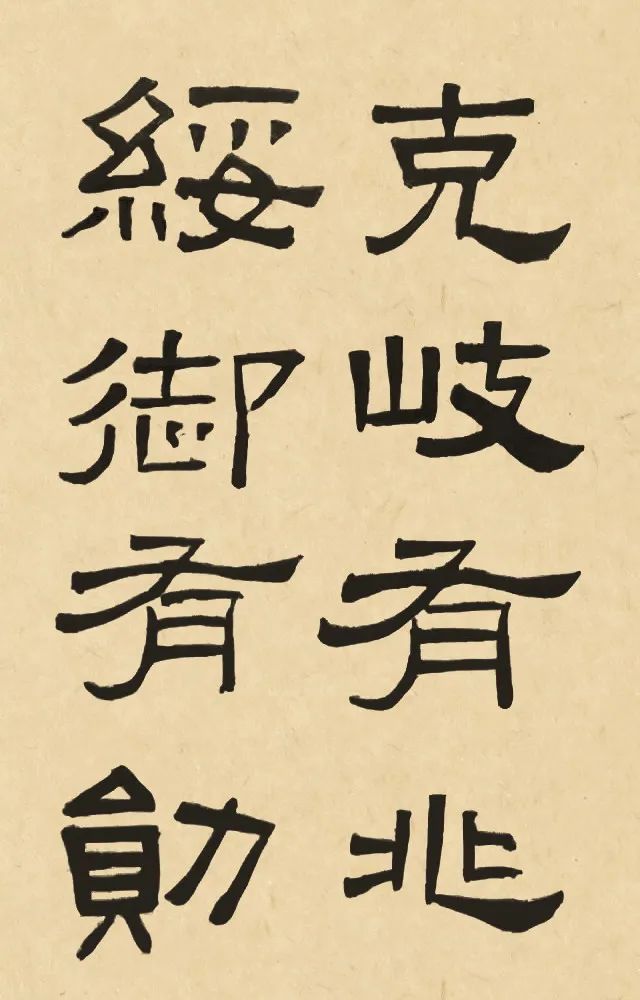 克岐有兆
綏御有勛